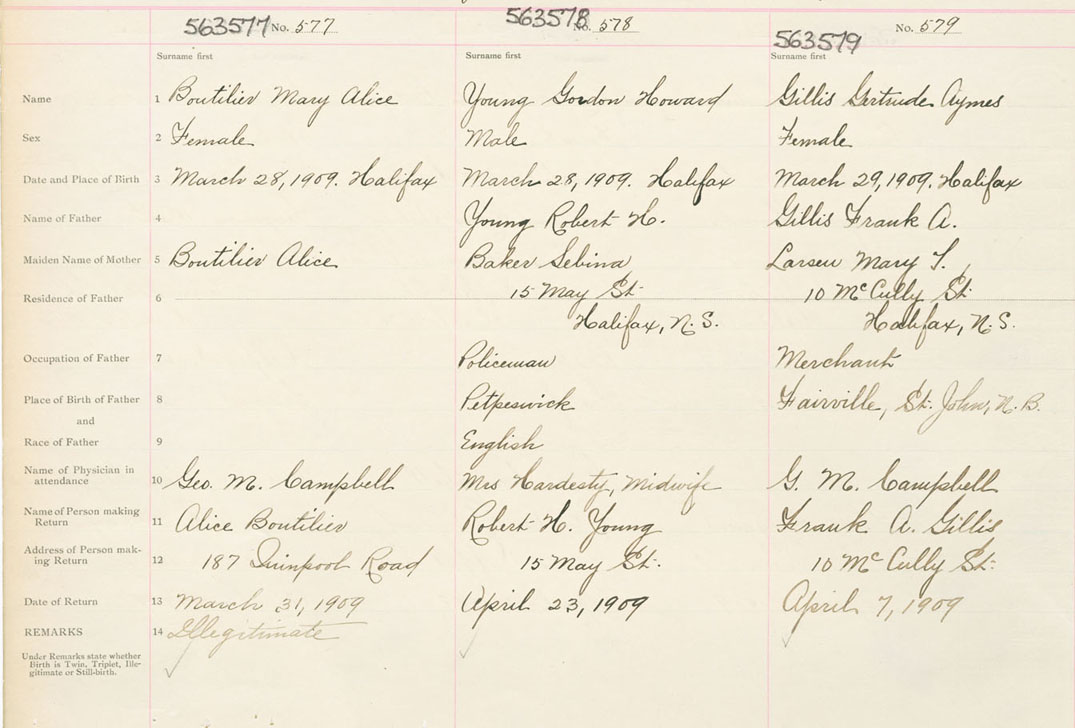 563577 No. 577
563578 No. 578
563579 No. 579
Surname first Surname first Surname first
Name 1 Boutilier Mary Alice Young Gordon Howard Gillis Gertrude Aymes
Sex 2 Female Male Female
Date and Place of Birth 3 March 28, 1909. Halifax March 28, 1909. Halifax March 29, 1909. Halifax
Name of Father 4 Young Robert H. Gillis Frank A.
Maiden Name of Mother 5 Boutilier Alice Baker Sebina Larsen Mary T.
Residence of Father 6 15 May St. 10 McCully St.
Halifax, N.S. Halifax, N.S.
Occupation of Father 7 Policeman Merchant
Place of Birth of Father 8 Petpeswick Fairville, St. John, N.B.
and
Race of Father 9 English
Name of Physician in
attendance 10 Geo. M. Campbell Mrs Hardesty, Midwife G. M. Campbell
Name of Person making
Return 11 Alice Boutilier Robert H. Young Frank A. Gillis
Address of Person mak-
ing Return 12 187 Quinpool Road 15 May St. 10 McCully St.
Date of Return 13 March 31, 1909 April 23, 1909 April 7, 1909
REMARKS 14 Illegitimate
Under Remarks state whether
Birth is Twin, Triplet, Ille-
gitimate or Still-birth.